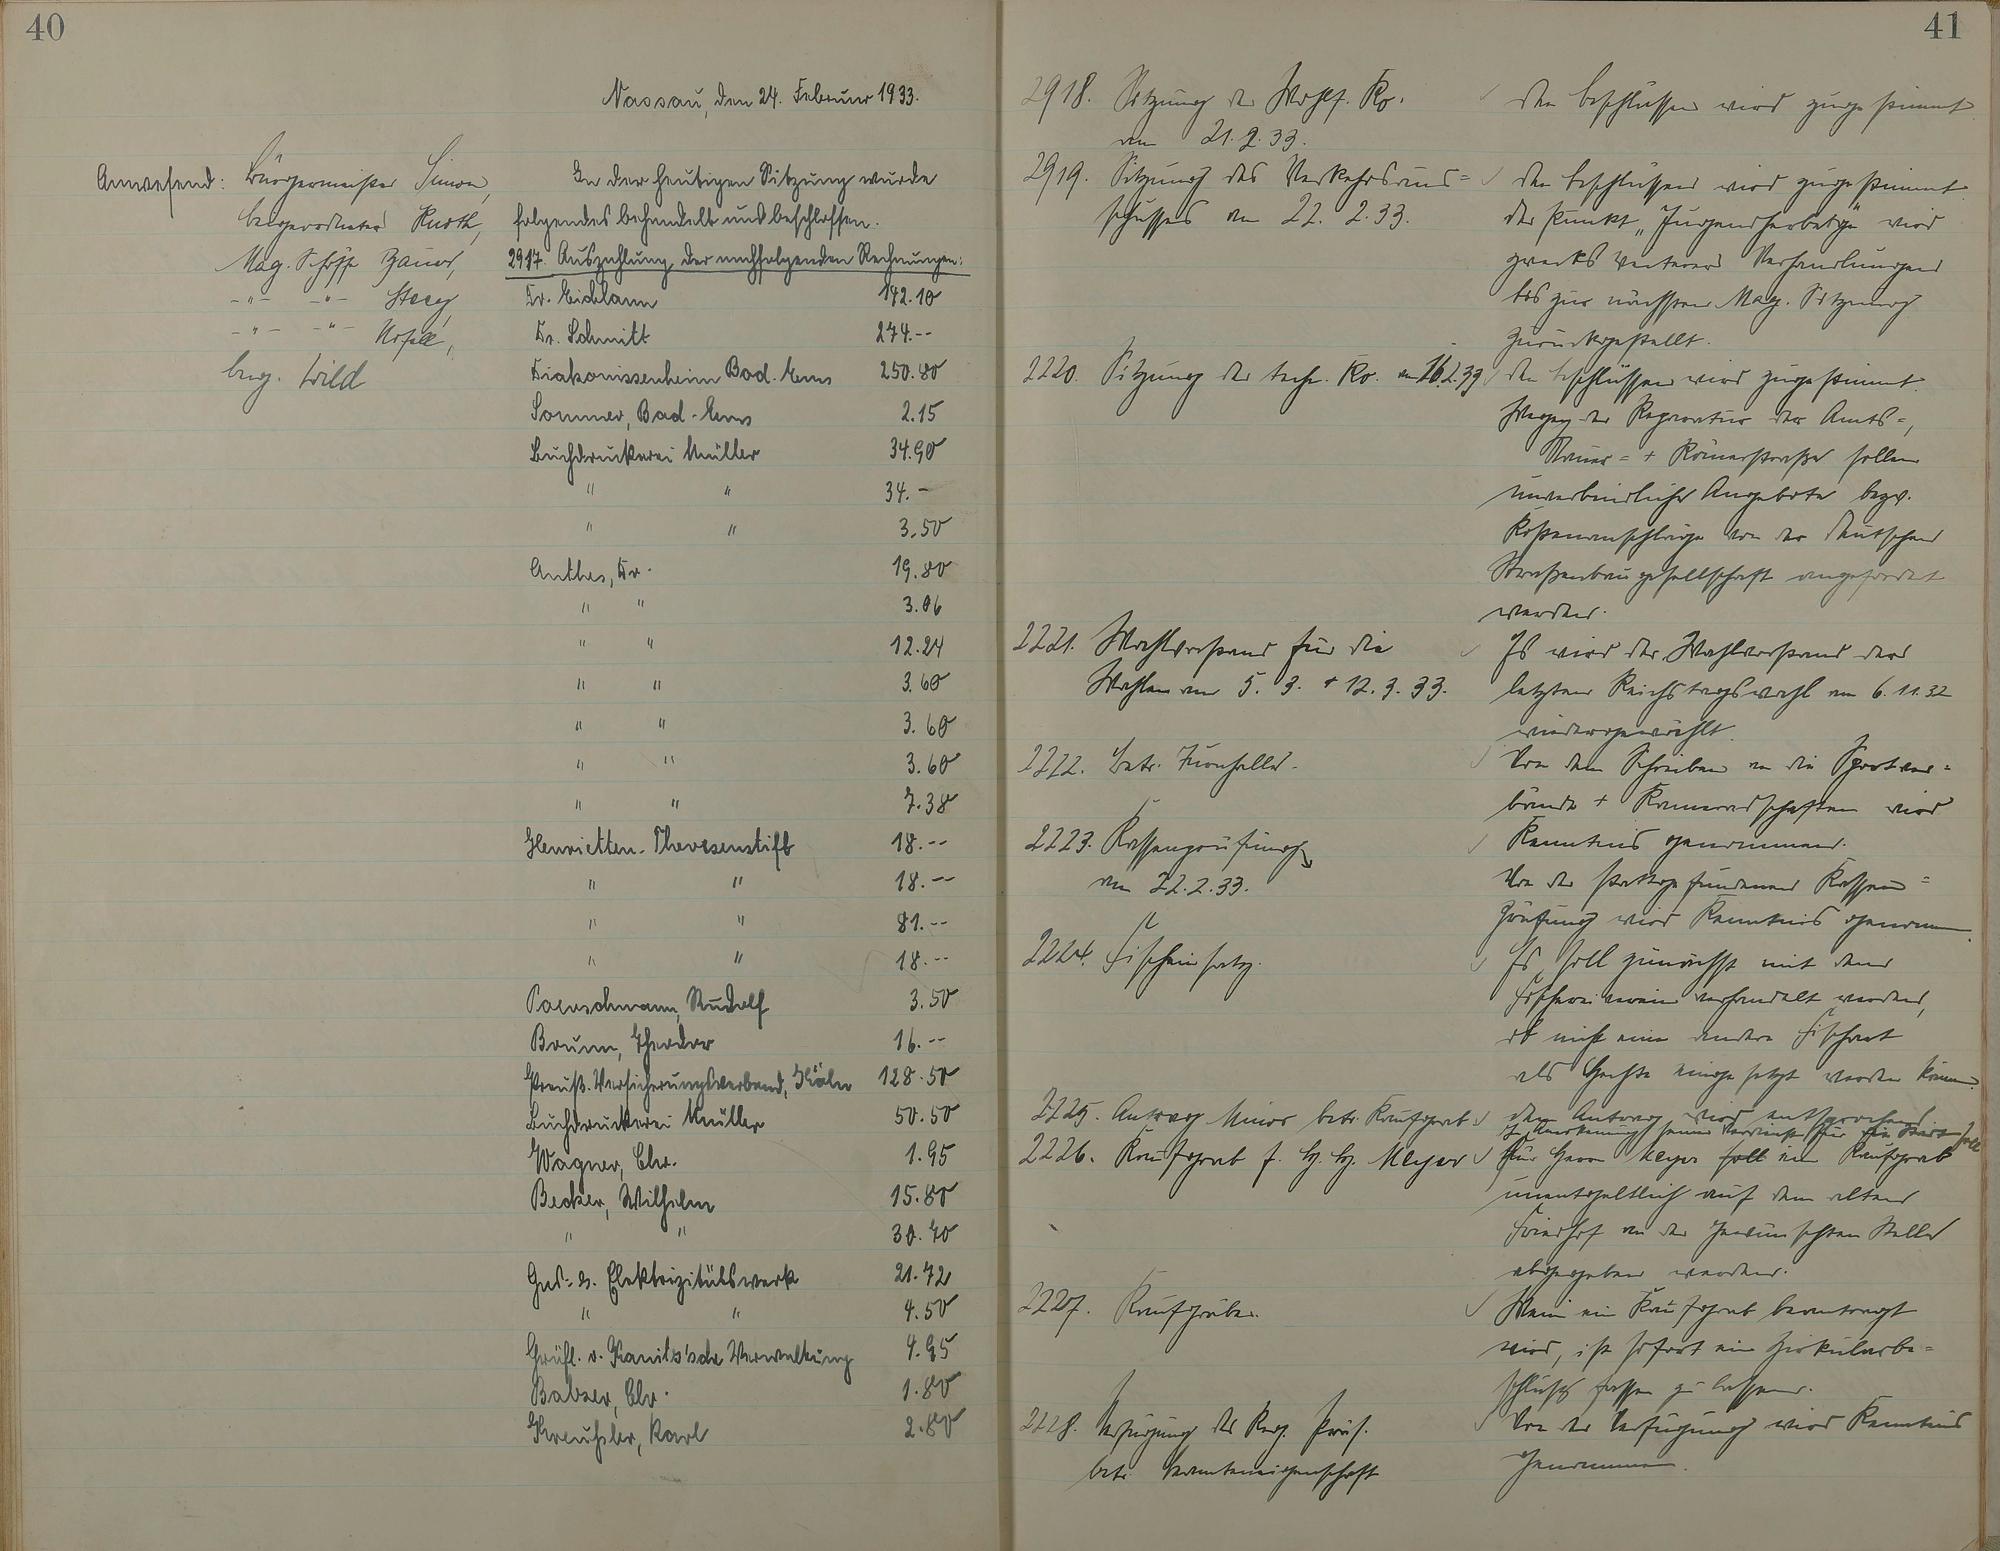 40
Nassau, den 24. Februar 1933.
Anwesend: Bürgermeister Simon,
Beigeordneter Kurth,
Mag. Schöffe
-"- -"-
-"- -"-
Beig. Wild
In der heutigen Sitzung wurde
folgendes behandelt und beschlossen.
2917. Auszahlung der nachfolgenden Rechnungen:
Dr. Eichmann 142.10
Dr. Schmitt 274.--
Diakonissenheim Bad-Ems 250.80
Sommer, Bad-Ems 2.15
Buchdruckerei Müller 34.90
" " 34.-
" " 3.50
Anthes, Dr. 19.80
" " 3.06
" " 12.24
" " 3.60
" " 3.60
" " 3.60
" " 7.38
Henrietten-Theresenstift 18.--
" " 18.--
" " 81.--
" " 18.--
Rudolf 3.50
Brumm, Theodor 16.--
Preuß. Versicherungsverband, Köln 128.50
Buchdruckerei Müller 50.50
Wagner, Chr. 1.95
Becker, Wilhelm 15.80
" " 30.70
Gas- u. Elektrizitätswerk 21.72
" " 4.50
Gräfl. v. Kanitz'sche Verwaltung 4.95
Balzer, Chr. 1.80
Kreuhsler, Karl 2.80
41
2918. Sitzung der Wohlf. Ko.
am 21.2.33.
Den Beschlüssen wird zugestimmt
2919. Sitzung des Verkehrsaus=
schusses am 22. 2. 33.
Den Beschlüssen wird zugestimmt.
Der Punkt „Jugendherberge" wird
zwecks weiterer Verhandlungen
bis zur nächsten Mag. Sitzung
zurückgestellt.
2220. Sitzung der techn. Ko. am 16.2.33
Den Beschlüssen wird zugestimmt.
Wegen der Reparatur der Amts=,
+ Römerstraße sollen
unverbindliche Angebote bezw.
Kostenanschläge von der Deutschen
Straßenbaugesellschaft angefordert
werden.
2221. Wahlvorstand für die
Wahlen am 5. 3. + 12. 3. 33.
Es wird der Wahlvorstand der
letzten Reichstagswahl am 6.11.32
wiedergewählt.
2222. Betr. Turnhalle.
Von dem Schreiben an die Sportver=
bände + Kameradschaften wird
Kenntnis genommen.
2223. Kassenprüfung
am 22.2.33.
Von der stattgefundenen Kassen=
prüfung wird Kenntnis genommen.
2224. Fischeinsatz.
Es soll zunächst mit dem
Fischereiverein verhandelt werden,
ob nicht eine andere Fischart
als Hechte eingesetzt werden können.
2225. Antrag Minor betr. Kaufgrab
Dem Antrag wird entsprochen
2226. Kaufgrab f. H. H. Meyer
In Anerkennung seiner Verdienste für die Stadt soll
für Herrn Meyer soll ein Kaufgrab
unentgeltlich auf dem alten
Friedhof an der gewünschten Stelle
abgegeben werden.
2227. Kaufgräber.
Wenn ein Kaufgrab beantragt
wird, ist sofort ein Zirkularbe=
schluß fassen zu lassen.
2228. Verfügung des Reg. Präs.
betr. Beamteneigenschaft
Von der Verfügung wird Kenntnis
genommen.